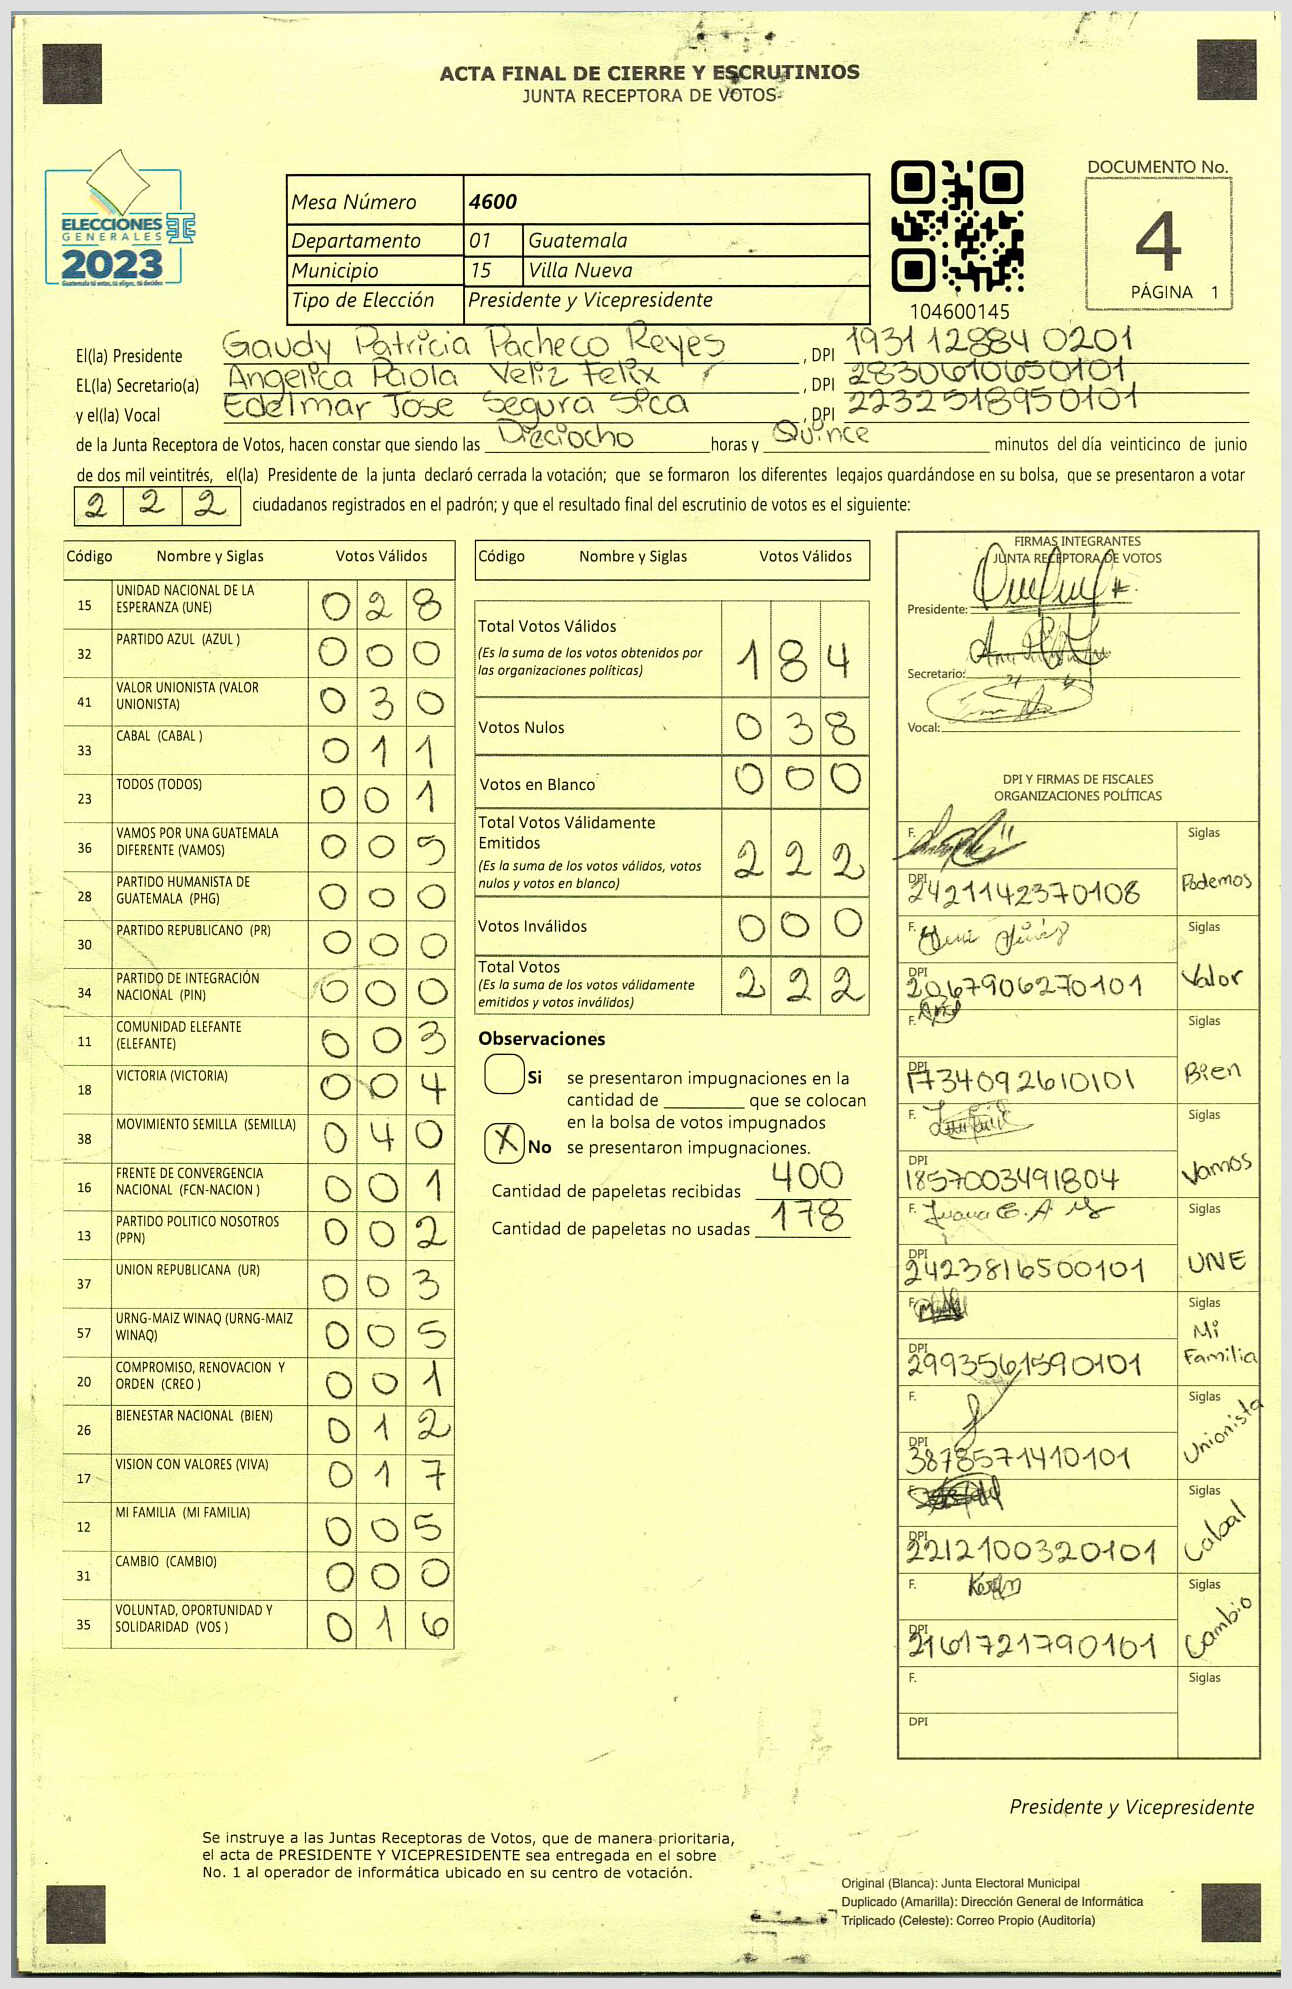 ACTA FINAL DE CIERRE Y ESCRUTINIOS
JUNTA RECEPTORA DE VOTOS
ELECCIONES
GENERALES
2023
Guatemala tú votas, tú eliges, tú decides
Mesa Número 4600
Departamento 01 Guatemala
Municipio 15 Villa Nueva
Tipo de Elección Presidente y Vicepresidente
104600145
DOCUMENTO No.
4
PÁGINA 1
El(la) Presidente Gaudy Patricia Pacheco Reyes, DPI 1931 12884 0201
EL(la) Secretario(a) Angelica Paola Veliz Felix, DPI 2830610650101
y el(la) Vocal Edelmar Jose Segura Sica, DPI 2232518950101
de la Junta Receptora de Votos, hacen constar que siendo las Dieciocho horas y Quince minutos del día veinticinco de junio
de dos mil veintitrés, el(la) Presidente de la junta declaró cerrada la votación; que se formaron los diferentes legajos guardándose en su bolsa, que se presentaron a votar
2 2 2 ciudadanos registrados en el padrón; y que el resultado final del escrutinio de votos es el siguiente:
Código Nombre y Siglas Votos Válidos
15 UNIDAD NACIONAL DE LA ESPERANZA (UNE) 0 2 8
32 PARTIDO AZUL (AZUL ) 0 0 0
41 VALOR UNIONISTA (VALOR UNIONISTA) 0 3 0
33 CABAL (CABAL ) 0 1 1
23 TODOS (TODOS) 0 0 1
36 VAMOS POR UNA GUATEMALA DIFERENTE (VAMOS) 0 0 5
28 PARTIDO HUMANISTA DE GUATEMALA (PHG) 0 0 0
30 PARTIDO REPUBLICANO (PR) 0 0 0
34 PARTIDO DE INTEGRACIÓN NACIONAL (PIN) 0 0 0
11 COMUNIDAD ELEFANTE (ELEFANTE) 0 0 3
18 VICTORIA (VICTORIA) 0 0 4
38 MOVIMIENTO SEMILLA (SEMILLA) 0 4 0
16 FRENTE DE CONVERGENCIA NACIONAL (FCN-NACION ) 0 0 1
13 PARTIDO POLITICO NOSOTROS (PPN) 0 0 2
37 UNION REPUBLICANA (UR) 0 0 3
57 URNG-MAIZ WINAQ (URNG-MAIZ WINAQ) 0 0 5
20 COMPROMISO, RENOVACION Y ORDEN (CREO ) 0 0 1
26 BIENESTAR NACIONAL (BIEN) 0 1 2
17 VISION CON VALORES (VIVA) 0 1 7
12 MI FAMILIA (MI FAMILIA) 0 0 5
31 CAMBIO (CAMBIO) 0 0 0
35 VOLUNTAD, OPORTUNIDAD Y SOLIDARIDAD (VOS ) 0 1 6
Código Nombre y Siglas Votos Válidos
Total Votos Válidos 1 8 4
(Es la suma de los votos obtenidos por
las organizaciones políticas)
Votos Nulos 0 3 8
Votos en Blanco 0 0 0
Total Votos Válidamente
Emitidos 2 2 2
(Es la suma de los votos válidos, votos
nulos y votos en blanco)
Votos Inválidos 0 0 0
Total Votos 2 2 2
(Es la suma de los votos válidamente
emitidos y votos inválidos)
Observaciones
Si se presentaron impugnaciones en la
cantidad de ________ que se colocan
en la bolsa de votos impugnados
X No se presentaron impugnaciones.
Cantidad de papeletas recibidas 400
Cantidad de papeletas no usadas 178
FIRMAS INTEGRANTES
JUNTA RECEPTORA DE VOTOS
Presidente:
Secretario:
Vocal:
DPI Y FIRMAS DE FISCALES
ORGANIZACIONES POLÍTICAS
F. Siglas
DPI 2421142370108 Podemos
F. Siglas
DPI 2067906270101 Valor
F. Siglas
DPI 1734092610101 Bien
F. Siglas
DPI 1857003491804 Vamos
F. Juana E. A Siglas
DPI 2423816500101 UNE
F. Siglas
Mi
DPI 2993561590101 Familia
F. Siglas
DPI 3878571410101 Unionista
F. Siglas
DPI 2212100320101 Cabal
F. Siglas
DPI 2161721790101 Cambio
F. Siglas
DPI
Presidente y Vicepresidente
Se instruye a las Juntas Receptoras de Votos, que de manera prioritaria,
el acta de PRESIDENTE Y VICEPRESIDENTE sea entregada en el sobre
No. 1 al operador de informática ubicado en su centro de votación.
Original (Blanca): Junta Electoral Municipal
Duplicado (Amarilla): Dirección General de Informática
Triplicado (Celeste): Correo Propio (Auditoría)